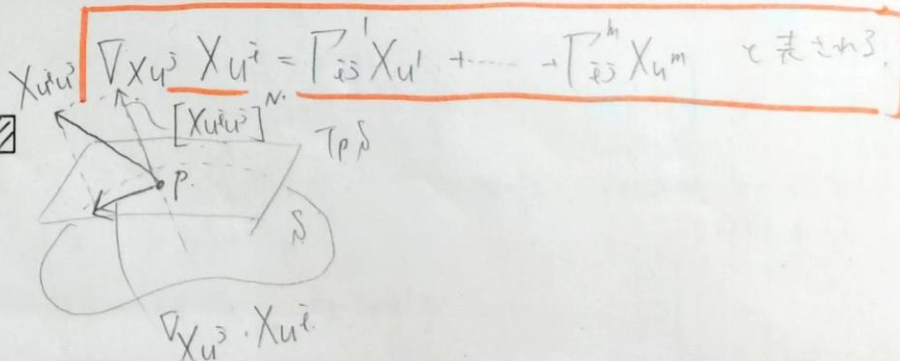 ∇_{Xu^j} Xu^i = Γ_{ij}^1 Xu^1 + ...... + Γ_{ij}^m Xu^m と表される.
Xu^iu^j
[Xu^iu^j]^N.
TpS
P.
S
∇_{Xu^j} · Xu^i